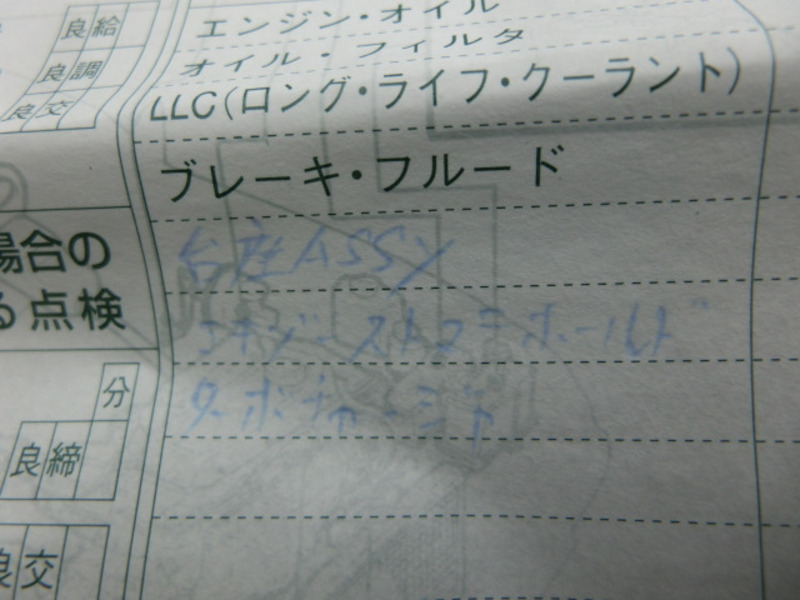 良 給
エンジン・オイル
良 調
オイル・フィルタ
良 交
LLC(ロング・ライフ・クーラント)
ブレーキ・フルード
場合の
る点検
台座ASSY
エキゾーストマニホールド
ターボチャージャ
分
良 締
良 交